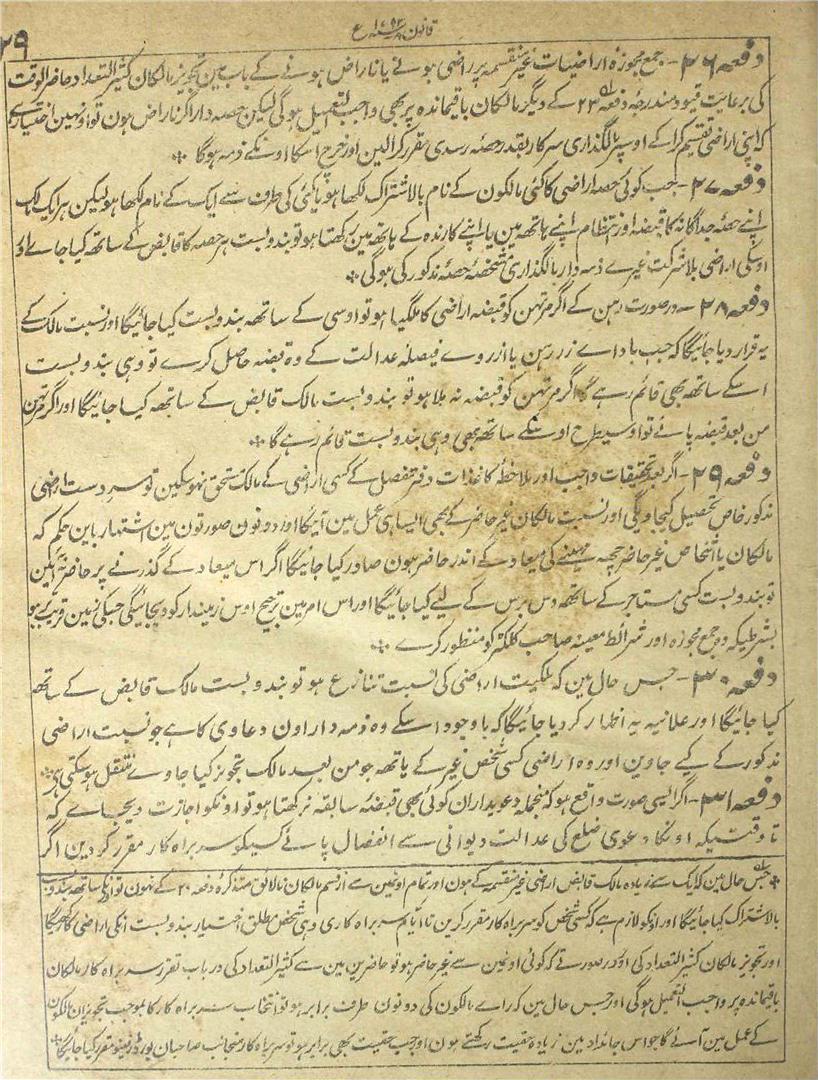 قانون ۸ ۱۷۹۳ سنہ ع
۲۹
دفعہ ۲۶ - جمع مجوزہ اراضیات غیر منقسمہ پر راضی ہونے یا ناراض ہونے کے باب مین تجویز مالکان کثیر التعداد حاضر الوقت
کی برعایت قیود مندرجہ دفعہ ۲۳ کے دیگر مالکان باقیماندہ پر بھی واجب التعمیل ہوگی لیکن حصہ دار اگر ناراض ہون تو اونہین اختیار ہے
کہ اپنی اراضی تقسیم کرا کے اوسپر مالگذاری سرکار بقدر حصہ رسدی مقرر کرالین اور خرچ اسکا اونکے ذمہ ہوگا
دفعہ ۲۷ - جب کوئی حصہ اراضی کا کئی مالکون کے نام بالاشتراک لکھا ہو یا کئی کی طرف سے ایک کے نام لکھا ہو لیکن ہر ایک مالک
اپنے حصہ جداگانہ کا قبضہ اور انتظام اپنے ہاتھ مین یا اپنے کارندہ کے ہاتھ مین رکھتا ہو تو بندوبست ہر حصہ کا قابض کے ساتھ کیا جاے اور
اوسکی اراضی بلا شرکت غیرے ذمہ دار مالگذاری مشخصہ حصہ مذکور کی ہوگی
دفعہ ۲۸ - درصورت رہن کے اگر مرتہن کو قبضہ اراضی کا ملگیا ہو تو اوسی کے ساتھ بندوبست کیا جائیگا اور نسبت مالک کے
یہ قرار دیا جائیگا کہ جب باداے زر رہن یا ازروے فیصلہ عدالت کے وہ قبضہ حاصل کرے تو وہی بندوبست
اسکے ساتھ بھی قائم رہے گا اگر مرتہن کو قبضہ نہ ملا ہو تو بندوبست مالک قابض کے ساتھ کیا جائیگا اور اگر مرتہن
من بعد قبضہ پائے تو اوسیطرح اوسکے ساتھ بھی وہی بندوبست قائم رہے گا
دفعہ ۲۹ - اگر بعد تحقیقات واجب اور ملاحظہ کاغذات دفتر مفصل کے کسی اراضی کے مالک مستحق نہوسکین تو سردست اراضی
مذکور خاص تحصیل کیجاویگی اور نسبت مالکان غیر حاضر کے بھی ایسا ہی عمل مین آئیگا اور دونون صورتون مین اشتہار باین حکم کہ
مالکان یا اشخاص غیر حاضر چھہ مہینے کی میعاد کے اندر حاضر ہون صادر کیا جائیگا اگر اس میعاد کے گذرنے پر حاضر نہ آئین
تو بندوبست کسی مستاجر کے ساتھ دس برس کے لیے کیا جائیگا اور اس امر مین ترجیح اوس زمیندار کو دیجائیگی جسکی زمین قریب ہو
بشرطیکہ وہ جمع مجوزہ اور شرائط معینہ صاحب کلکٹر کو منظور کرے
دفعہ ۳۰ - جس حال مین کہ ملکیت اراضی کی نسبت تنازع ہو تو بندوبست مالک قابض کے ساتھ
کیا جائیگا اور علانیہ یہ اظہار کردیا جائیگا کہ باوجود اسکے وہ ذمہ دار اون دعاوی کا ہے جو نسبت اراضی
مذکور کے کیے جاوین اور وہ اراضی کسی شخص غیر کے ہاتھ جو من بعد مالک تجویز کیا جاوے منتقل ہوسکتی ہی
دفعہ ۳۱ - اگر ایسی صورت واقع ہو کہ منجملہ دعویداران کوئی بھی قبضہ سابقہ نرکھتا ہو تو اونکو اجازت دیجاے کہ
تا وقتیکہ اونکا دعوی ضلع کی عدالت دیوانی سے انفصال پائے کسیکو سربراہ کار مقرر کردین اگر
جس حال مین کہ ایک سے زیادہ مالک قابض اراضی غیر منقسمہ کے ہون اور تمام اونمین سے از قسم مالکان نالائق متذکرہ دفعہ ۲۰ کے نہون تو اونکے ساتھ بندوبست
بالاشتراک کیا جائیگا اور اونکو لازم ہے کہ کسی شخص کو سربراہ کار مقرر کرین تا ایام سربراہ کاری وہی شخص مطلق اختیار بندوبست انکی اراضی کا رکھیگا
اور تجویز مالکان کثیر التعداد کی اور درصورتے کہ کوئی اونمین سے غیر حاضر ہو تو حاضرین مین سے کثیر التعداد کی درباب تقرر سربراہ کار مالکان
باقیماندہ پر واجب التعمیل ہوگی اور جس حال مین کہ راے مالکون کی دونون طرف برابر ہو تو انتخاب سربراہ کار کا بموجب تجویز ان مالکون
کے عمل مین آئے گا جو اس جائداد مین زیادہ حقیت رکھتے ہون اور جب حقیت بھی برابر ہو تو سربراہ کار منجانب صاحبان بورڈ رینیو مقرر کیا جائیگا